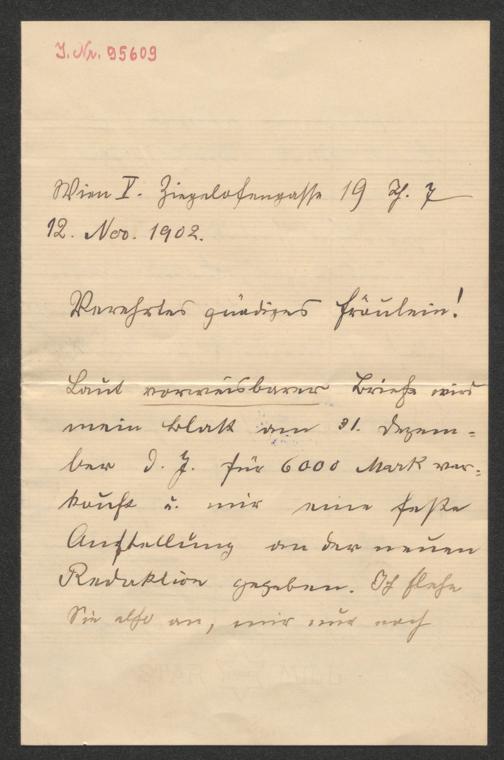 J. Nr. 95609
Wien V. Ziegelofengasse 19 Th. 7
12. Nov. 1902.
Verehrtes gnädiges Fräulein!
Laut vorweisbarer Briefe wird
mein Blatt am 31. Dezem-
ber d. J. für 6000 Mark ver-
kauft u. mir eine feste
Anstellung an der neuen
Redaktion gegeben. Ich flehe
Sie also an, mir nur noch